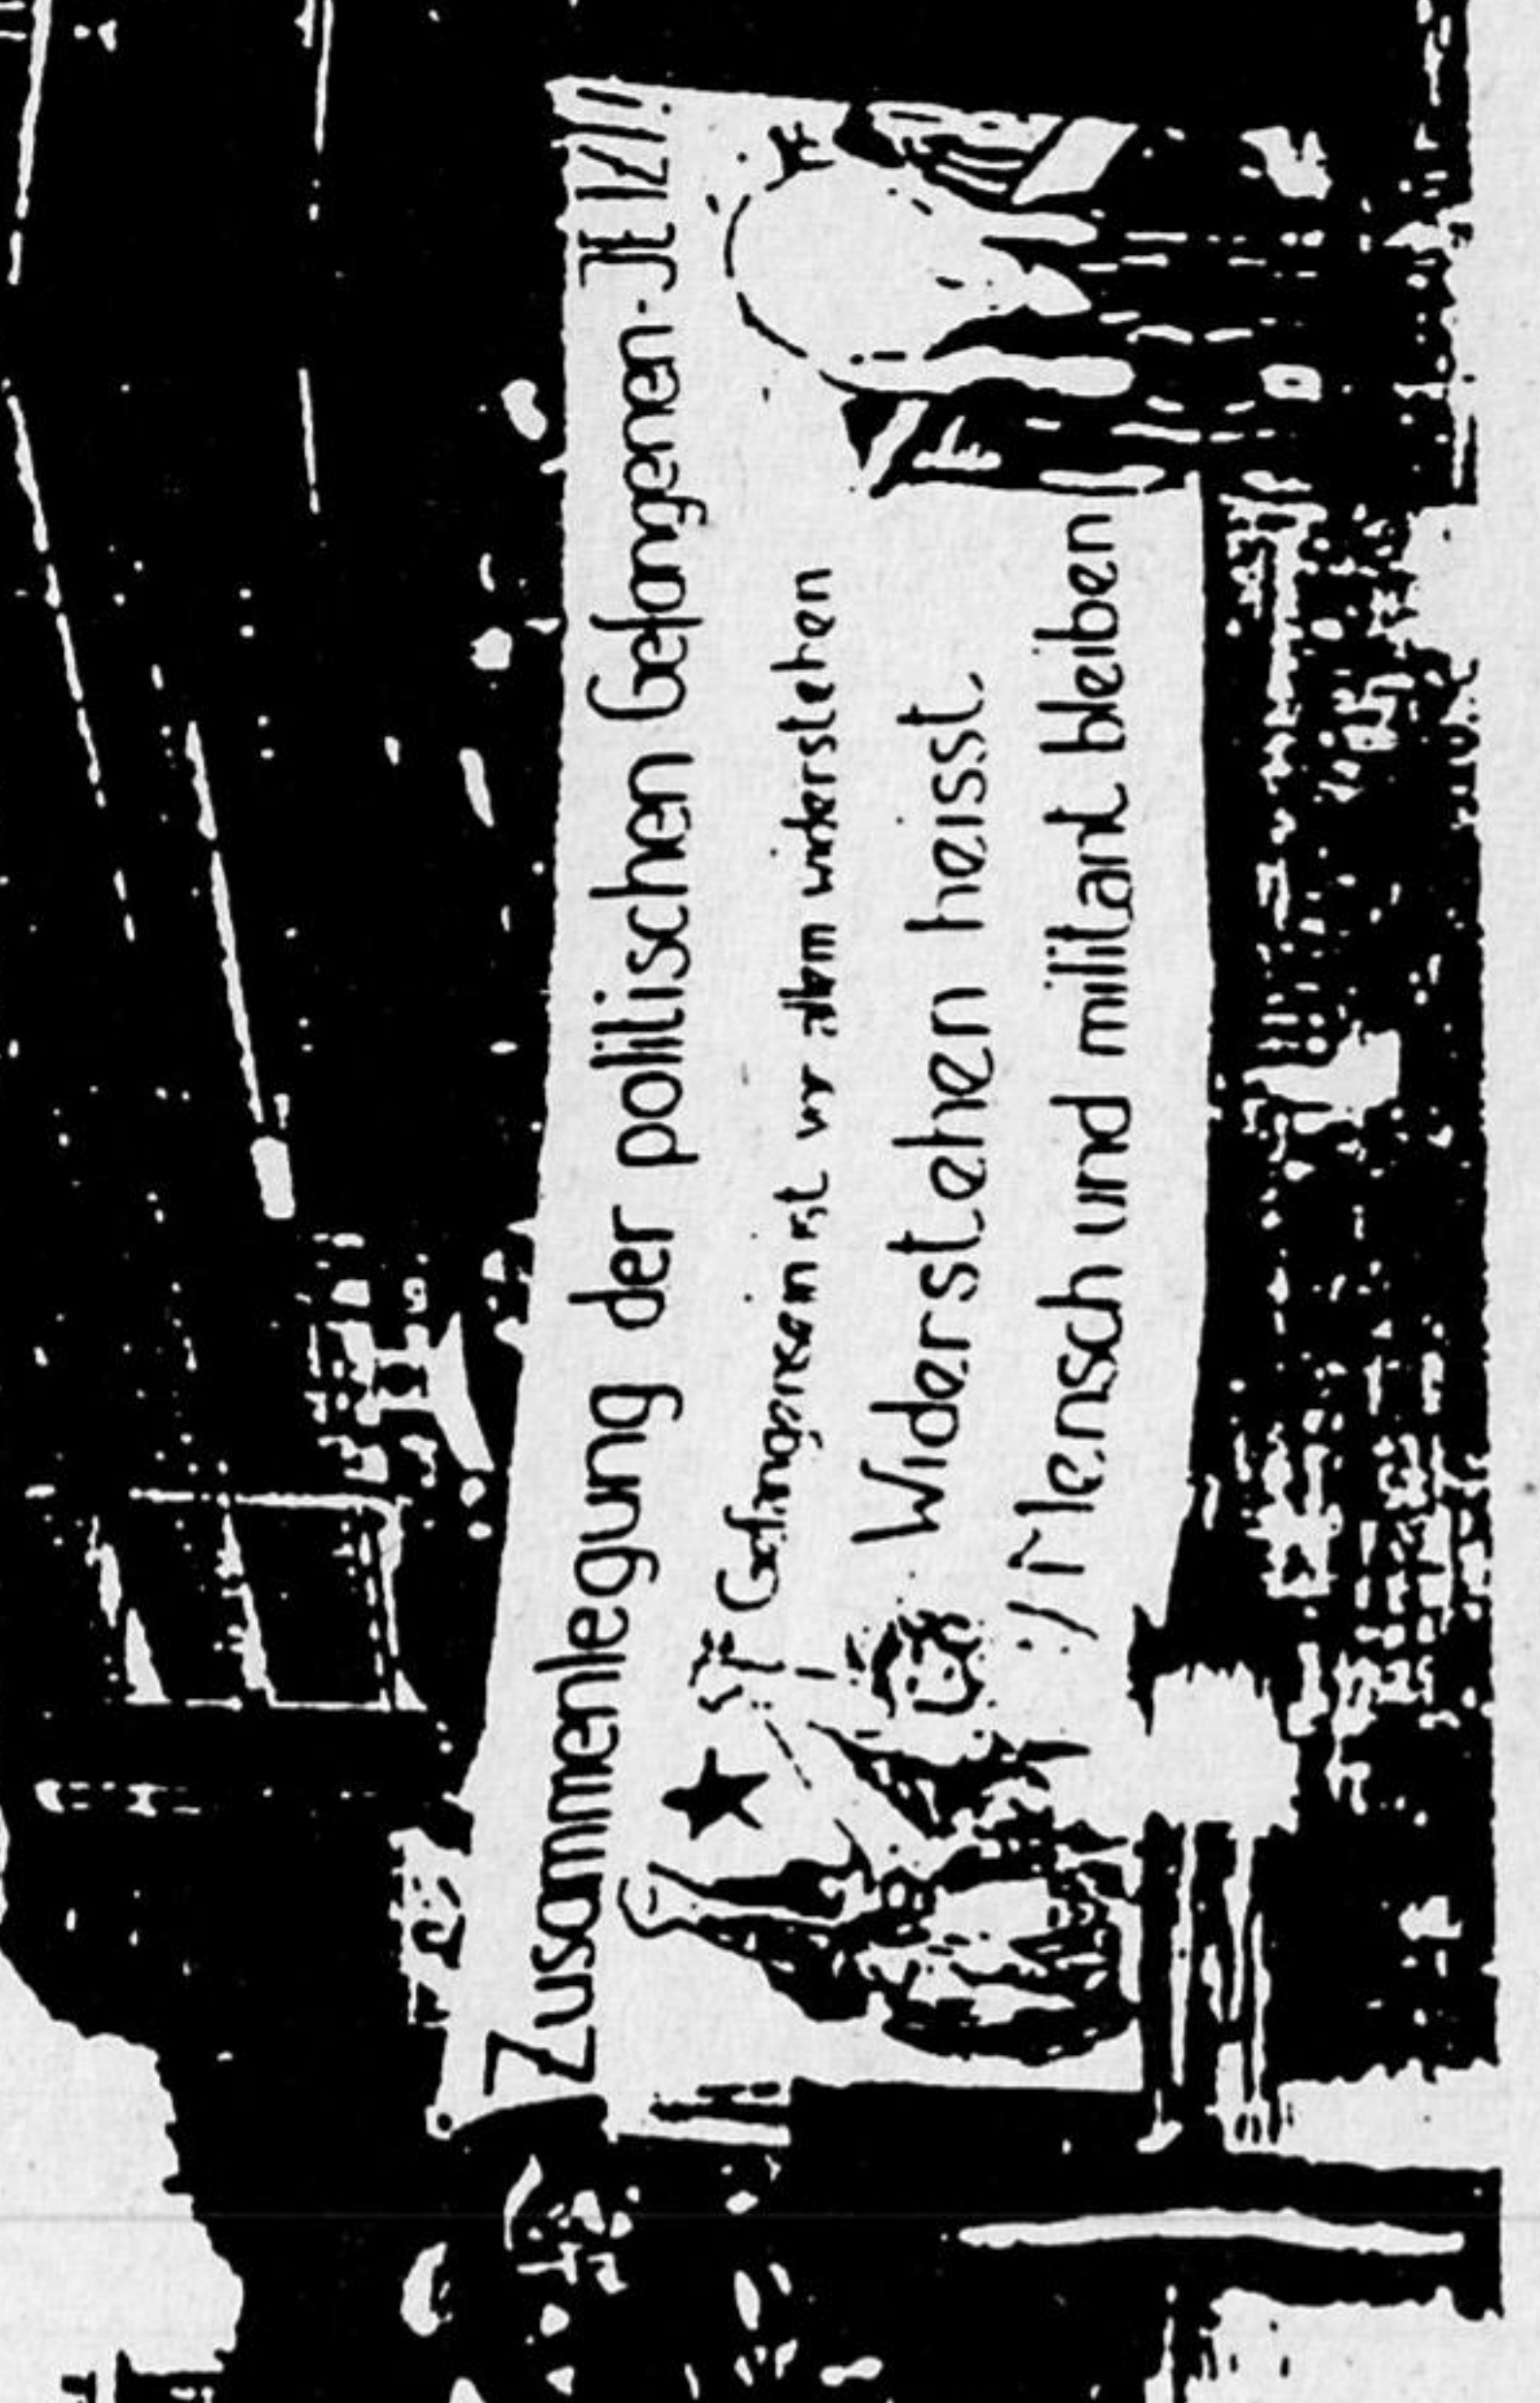 Zusammenlegung der politischen Gefangenen Jetzt!
Gefangensein ist vor allem widerstehen
Widerstehen heisst
Mensch und militant bleiben